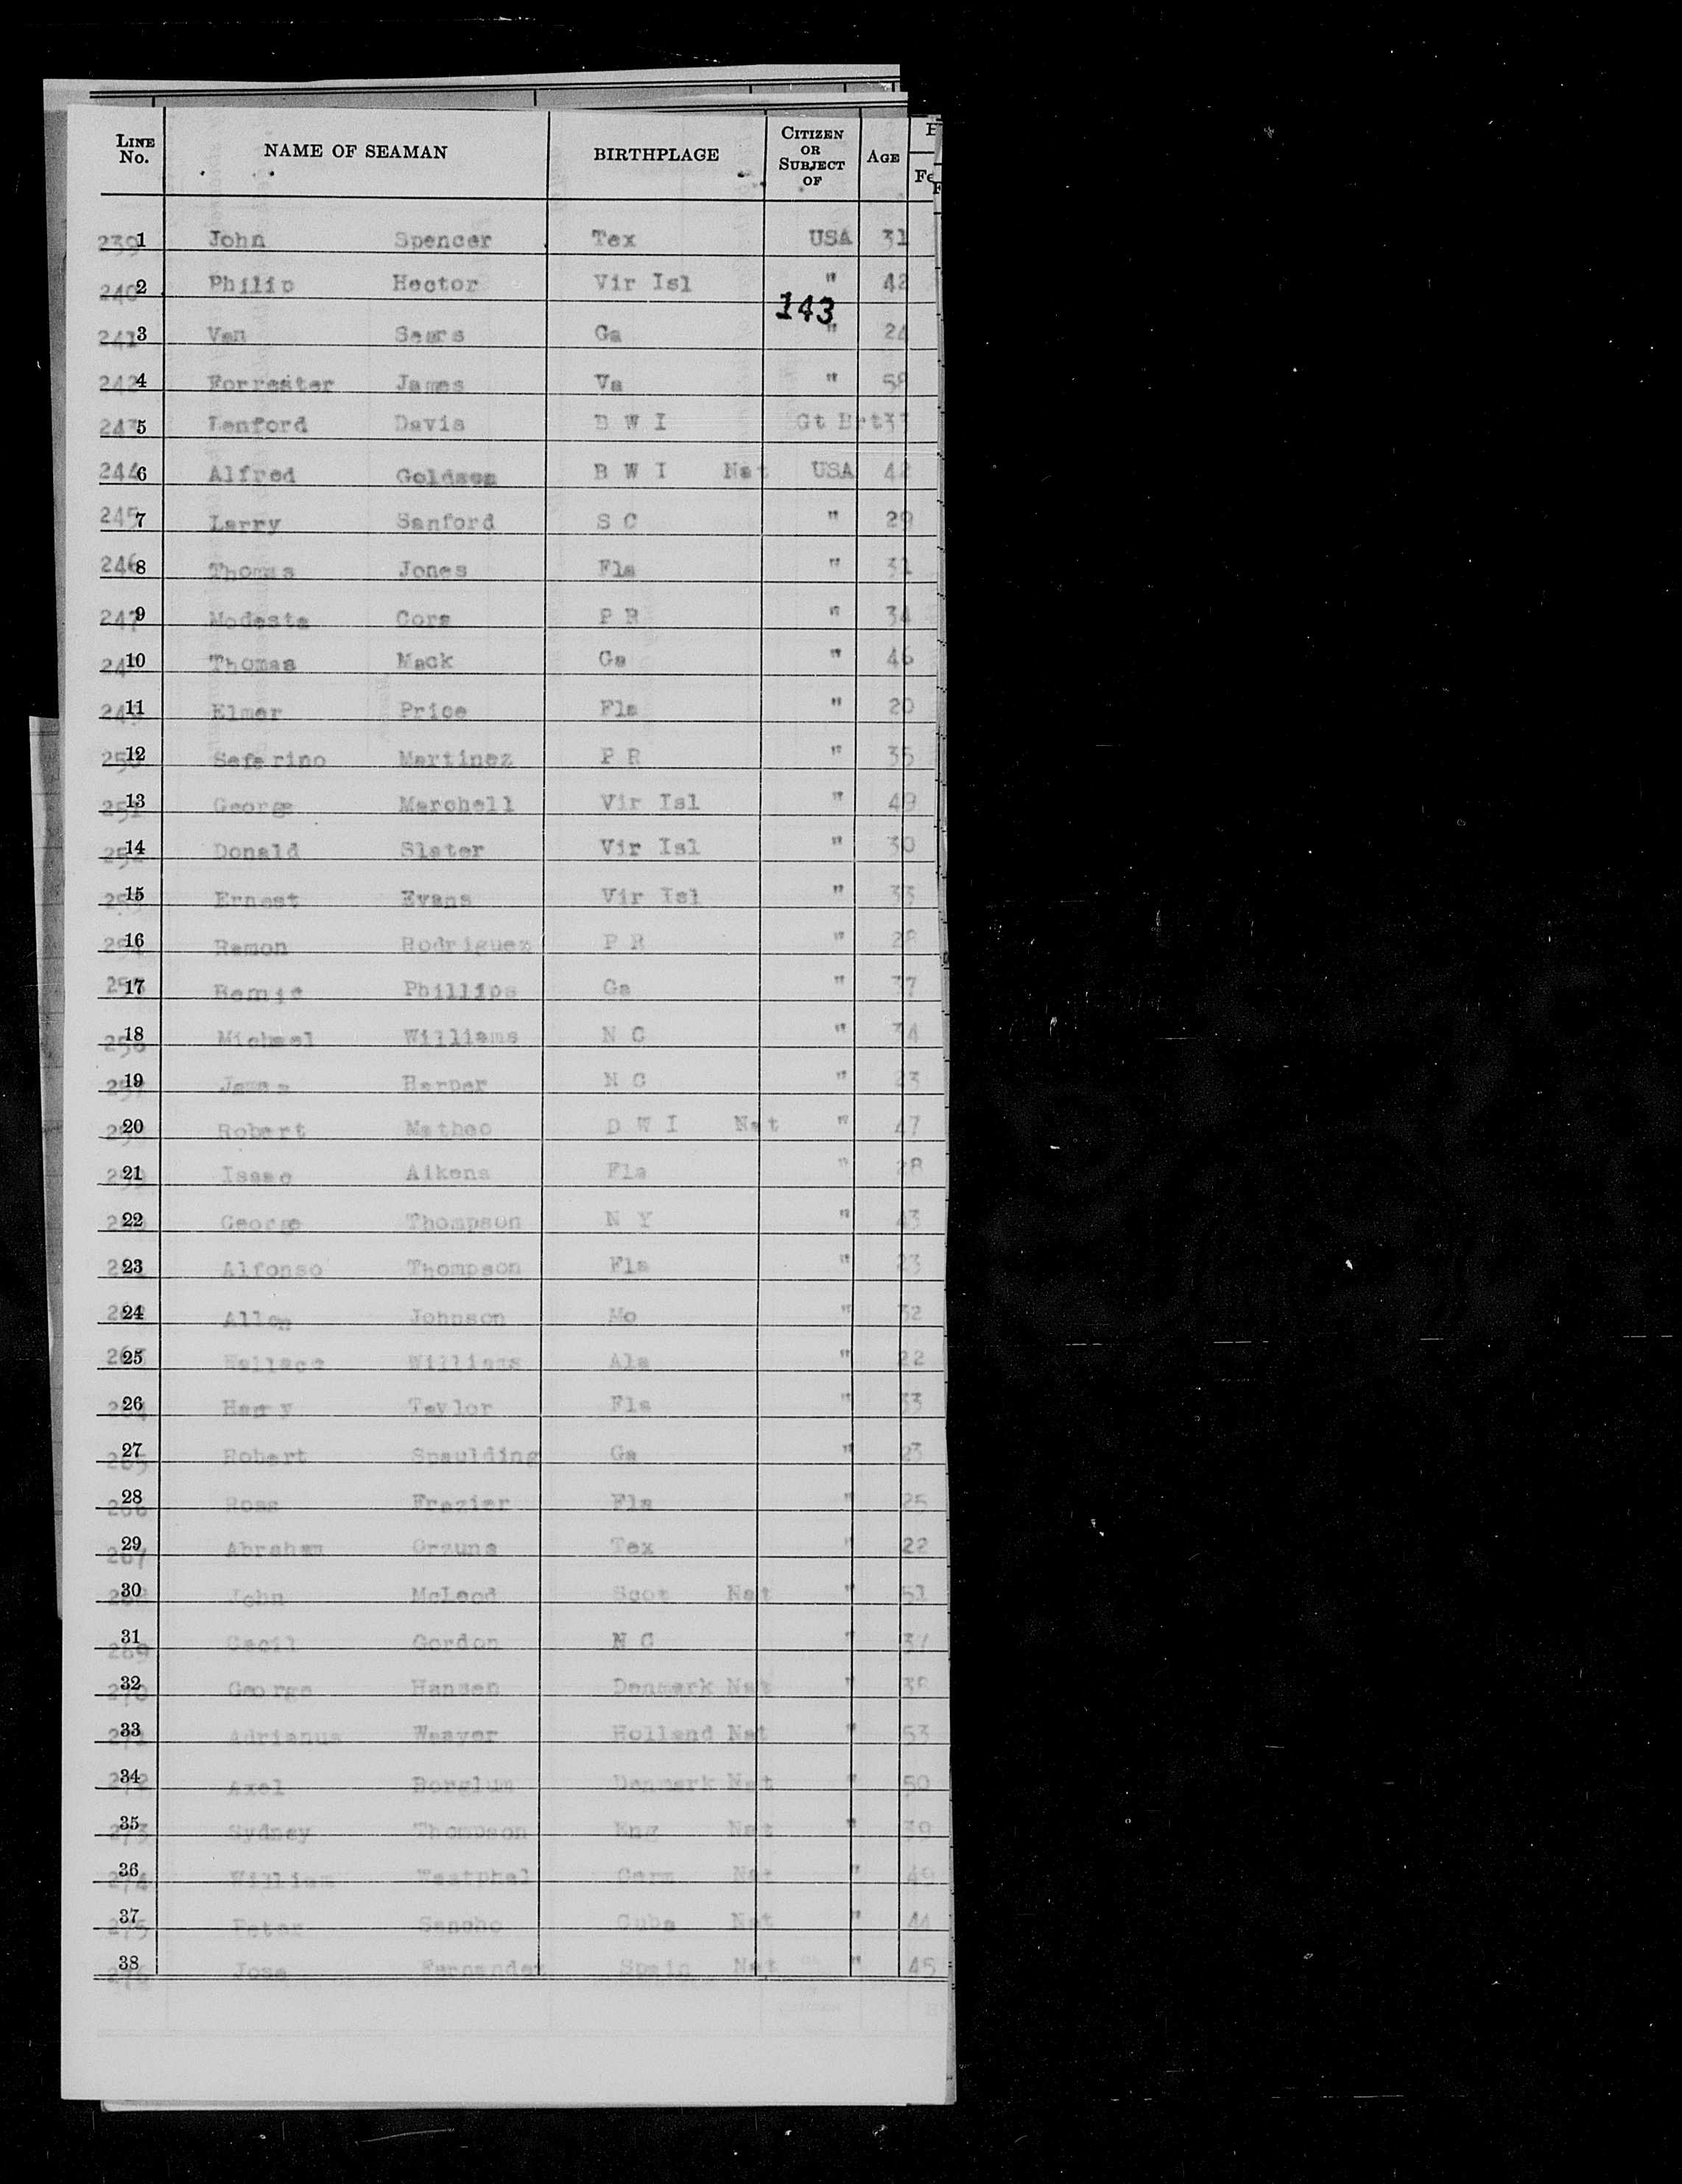 LINE No. NAME OF SEAMAN BIRTHPLAGE CITIZEN OR SUBJECT OF AGE
239 1 John Spencer Tex USA 31
240 2 Philip Hector Vir Isl " 42
143
241 3 Van Sears Ga " 24
242 4 Forrester James Va "
243 5 Lenford Davis B W I Gt Brt
244 6 Alfred B W I Nat USA
245 7 Larry Sanford S C " 29
246 8 Thomas Jones Fla " 31
247 9 Modesta Cora P R " 34
10 Thomas Mack Ga " 46
11 Elmer Price Fla " 20
12 Seferino Martinez P R " 35
13 George Marchell Vir Isl " 49
14 Donald Slater Vir Isl " 30
15 Ernest Evans Vir Isl " 33
16 Ramon Rodriguez P R " 28
17 Phillips Ga " 37
18 Michael Williams N C " 34
19 James Harper N C " 23
20 Robert Matheo D W I Nat " 47
21 Isaac Aikens Fla " 28
22 George Thompson N Y "
23 Alfonso Thompson Fla " 23
24 Allen Johnson Mo " 32
25 Wallace Williams Ala " 22
26 Harry Taylor Fla " 33
27 Robert Spaulding Ga " 23
28 Ross Frazier Fla " 25
267 29 Abraham Orzuna Tex " 22
30 John McLeod Scot Nat " 51
269 31 Cecil Gordon N C " 37
270 32 George Hansen Denmark Nat " 38
271 33 Adrianus Weaver Holland Nat " 53
272 34 Axel Borglum Denmark Nat " 50
273 35 Sydney Thompson Eng Nat " 39
274 36 William Westphal Germ Nat "
275 37 Peter Sancho Cuba Nat " 44
276 38 Jose Fernandez Spain Nat " 45